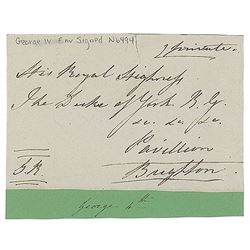 George IV Env Signed N6494
Private.
His Royal Highness
The Duke of York K.G.
&c. &c. &c.
Pavillion
Brighton
G.R.
George 4th